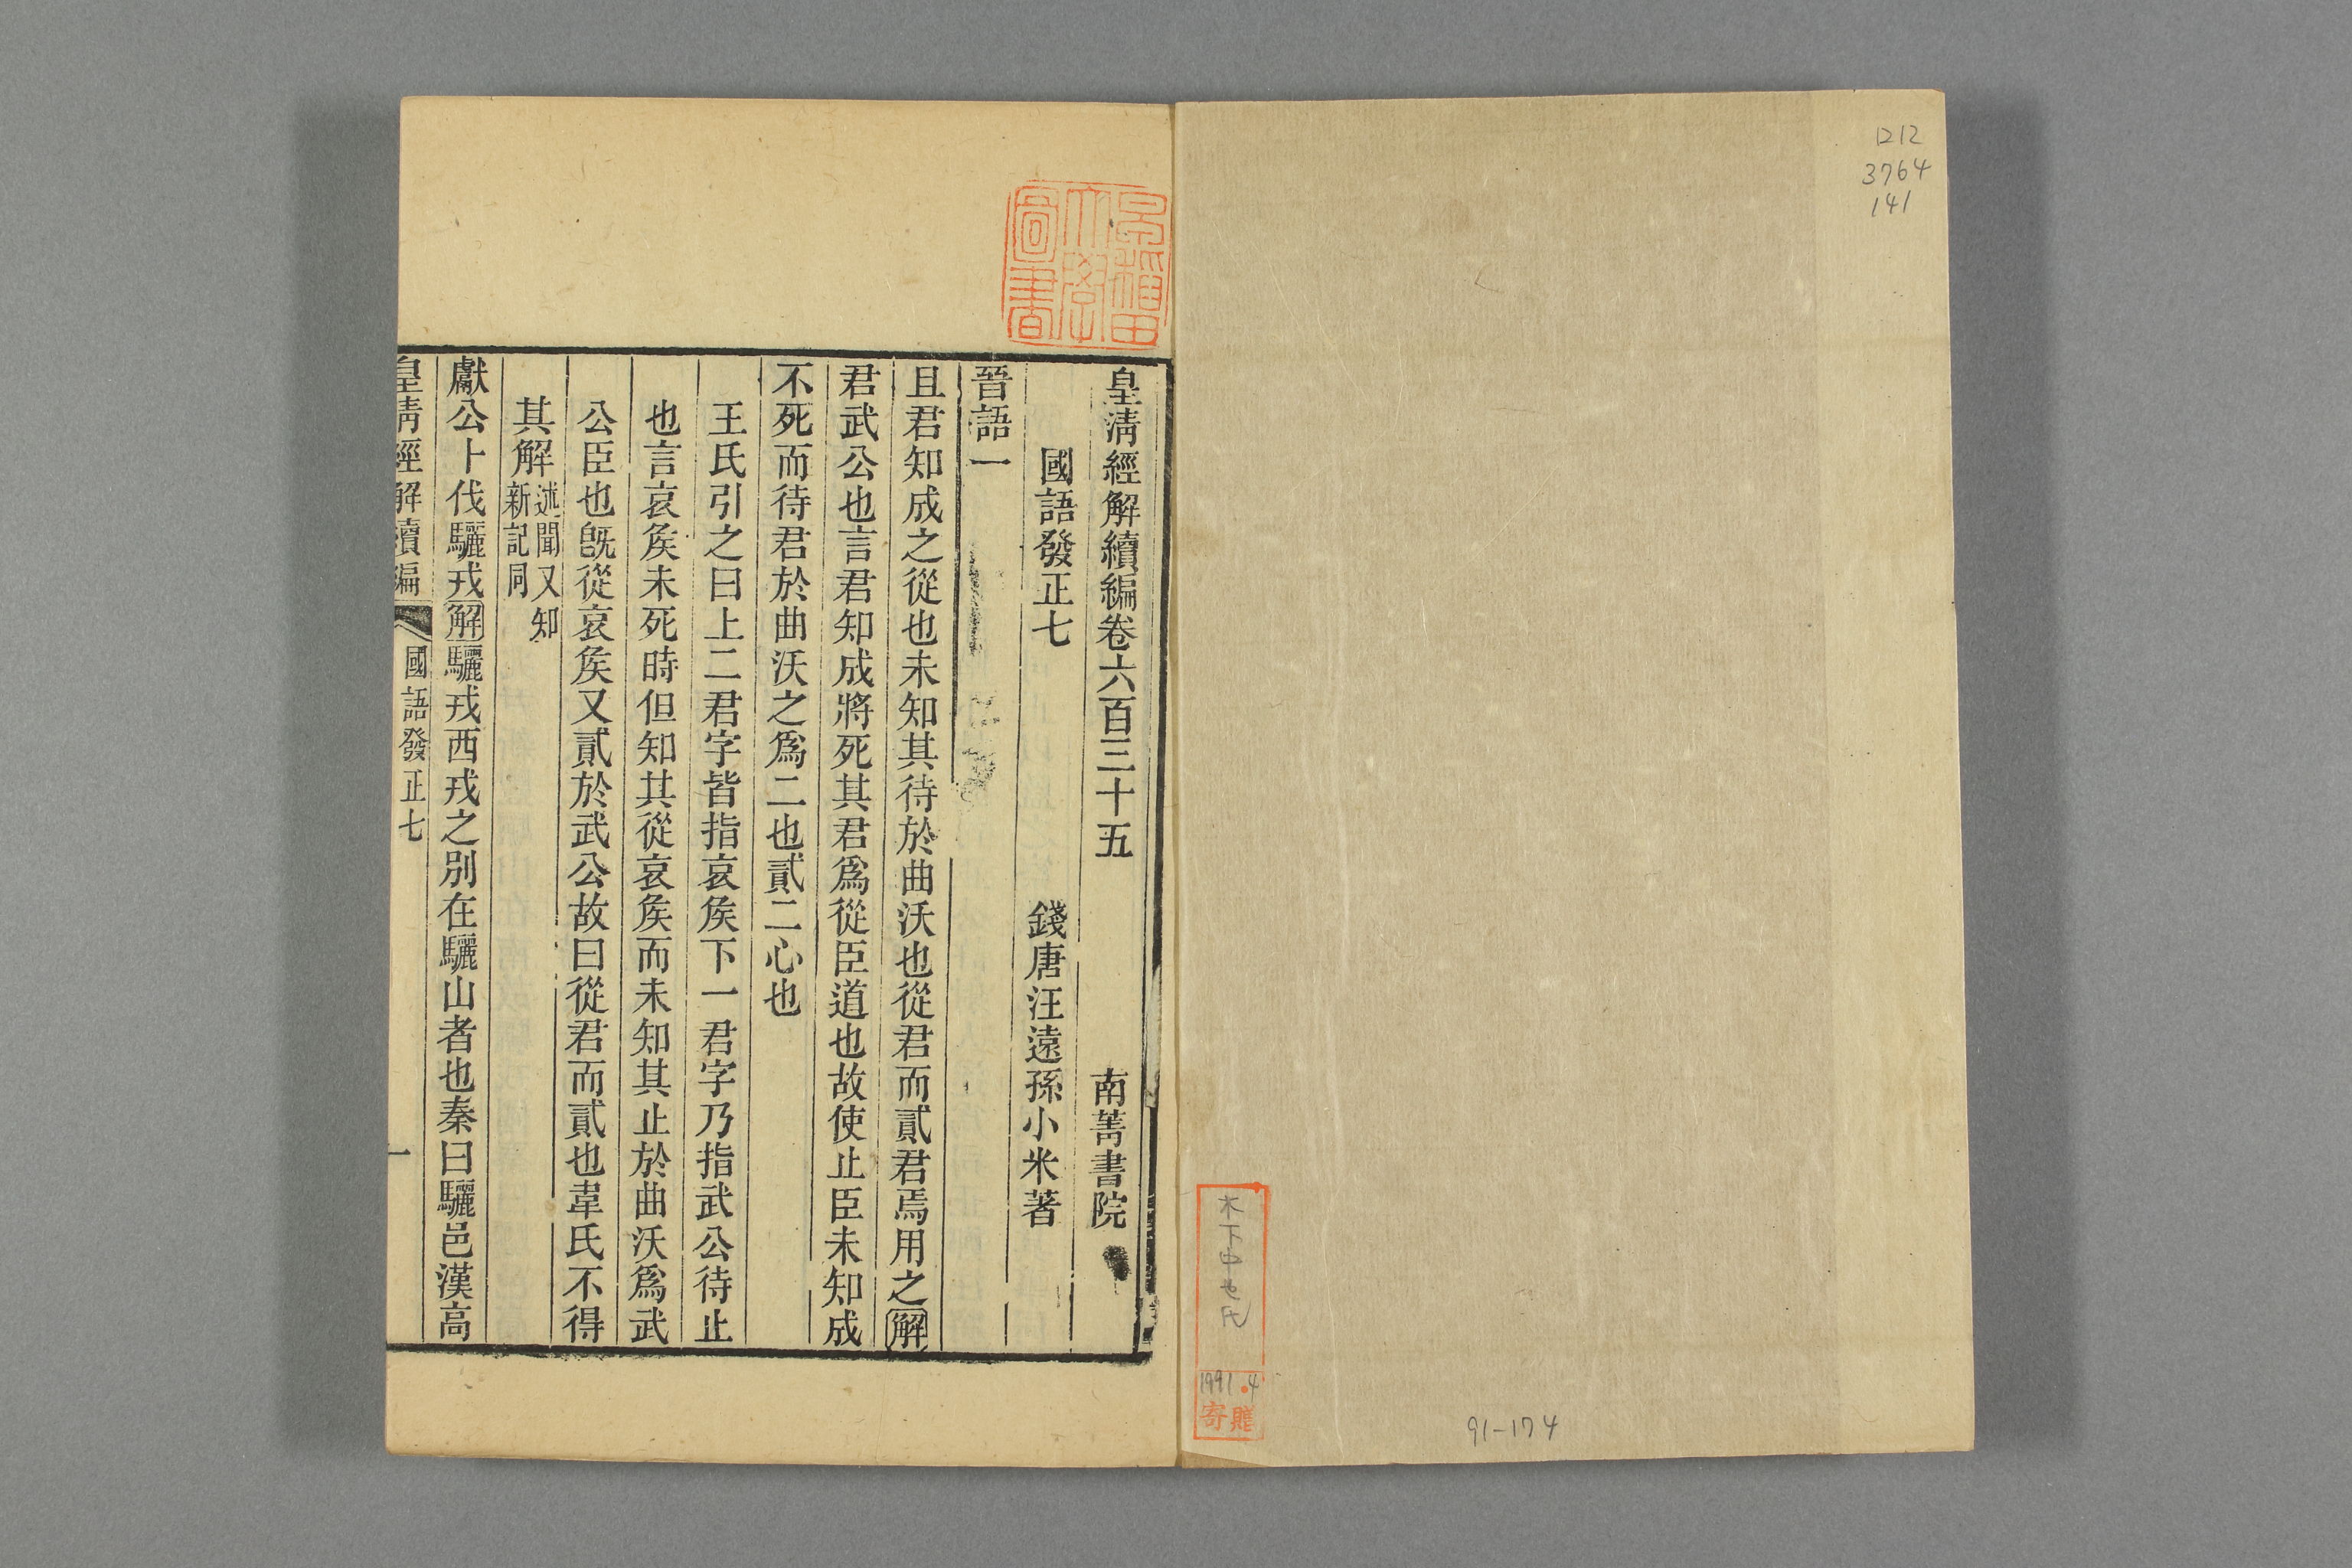 1212
3764
141
木下中也氏
1991.4
寄贈
91-174
早稲田大學圖書
皇清經解續編卷六百三十五 南菁書院
國語發正七 錢唐汪遠孫小米著
晉語一
且君知成之從也未知其待於曲沃也從君而貳君焉用之解
君武公也言君知成將死其君爲從臣道也故使止臣未知成
不死而待君於曲沃之爲二也貳二心也
王氏引之曰上二君字皆指哀矦下一君字乃指武公待止
也言哀矦未死時但知其從哀矦而未知其止於曲沃爲武
公臣也旣從哀矦又貳於武公故曰從君而貳也韋氏不得
其解述聞又知新記同
獻公卜伐驪戎解驪戎西戎之別在驪山者也秦曰驪邑漢高
皇清經解續編 國語發正七 一